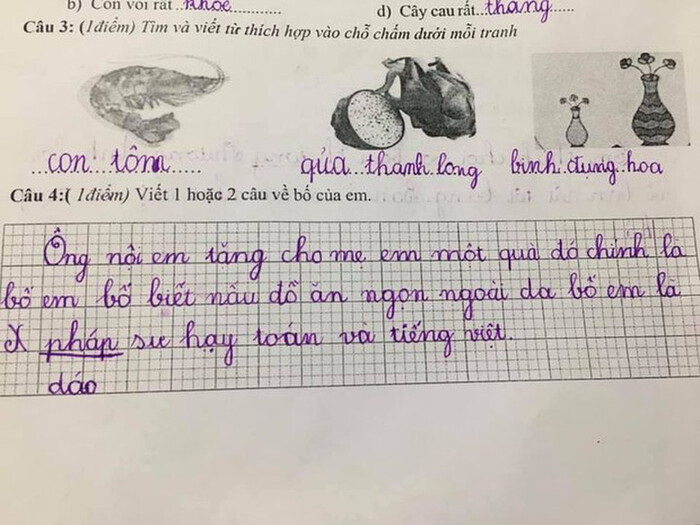 b) Con voi rất...khoẻ............ d) Cây cau rất...thẳng......
Câu 3: (1điểm) Tìm và viết từ thích hợp vào chỗ chấm dưới mỗi tranh
...con...tôm...... qủa...thanh.long bình.đựng.hoa
Câu 4:( 1điểm) Viết 1 hoặc 2 câu về bố của em.
Ông nội em tăng cho mẹ em một quà đó chính là
bố em bố biết nấu đồ ăn ngọn ngoài da bố em là
x pháp sư hạy toán và tiếng việt.
dáo